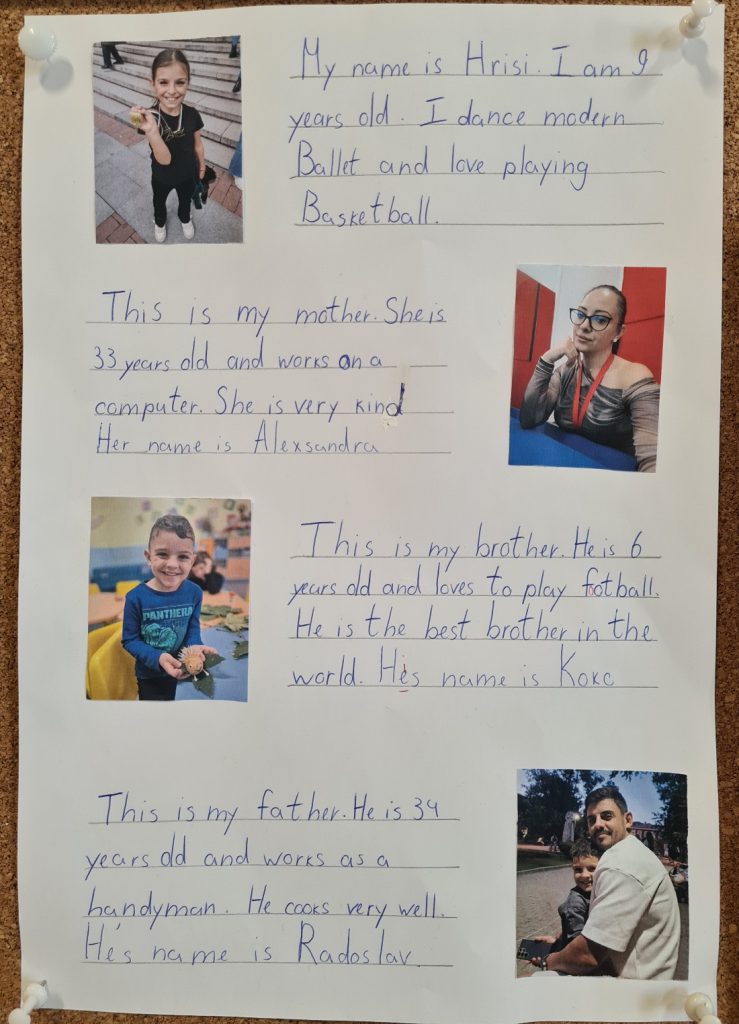 My name is Hrisi. I am 9
years old. I dance modern
Ballet and love playing
Basketball.
This is my mother. She is
33 years old and works on a
computer. She is very kind
Her name is Alexsandra
PANTHERA
This is my brother. He is 6
years old and loves to play football.
He is the best brother in the
world. His name is Kokc
This is my father. He is 34
years old and works as a
handyman. He cooks very well.
He's name is Radoslav